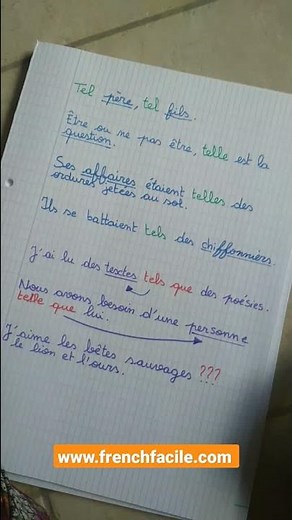 Tel père, tel fils.
Être ou ne pas être, telle est la
question.
Ses affaires étaient telles des
ordures jetées au sol.
Ils se battaient tels des chiffonniers.
J'ai lu des textes tels que des poésies.
Nous avons besoin d'une personne
telle que lui.
J'aime les bêtes sauvages ???
le lion et l'ours.
www.frenchfacile.com